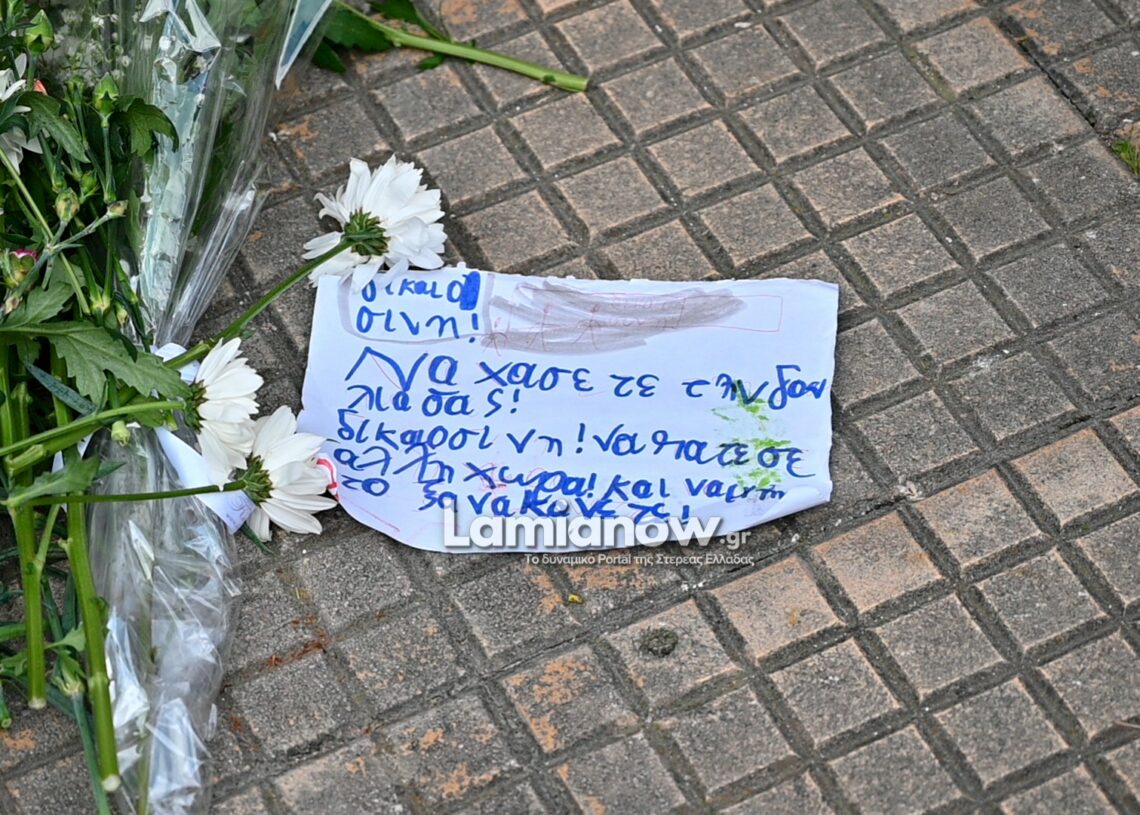 δικαιο
σινη!
Να χασε τε τ ην δου
λια σας!
δικαρσι νη! να πατεσε
αλ λη χωρα! και να μην
το ξανα κανε τε!
Lamianow.gr
Το δυναμικό Portal της Στερεας Ελλάδας